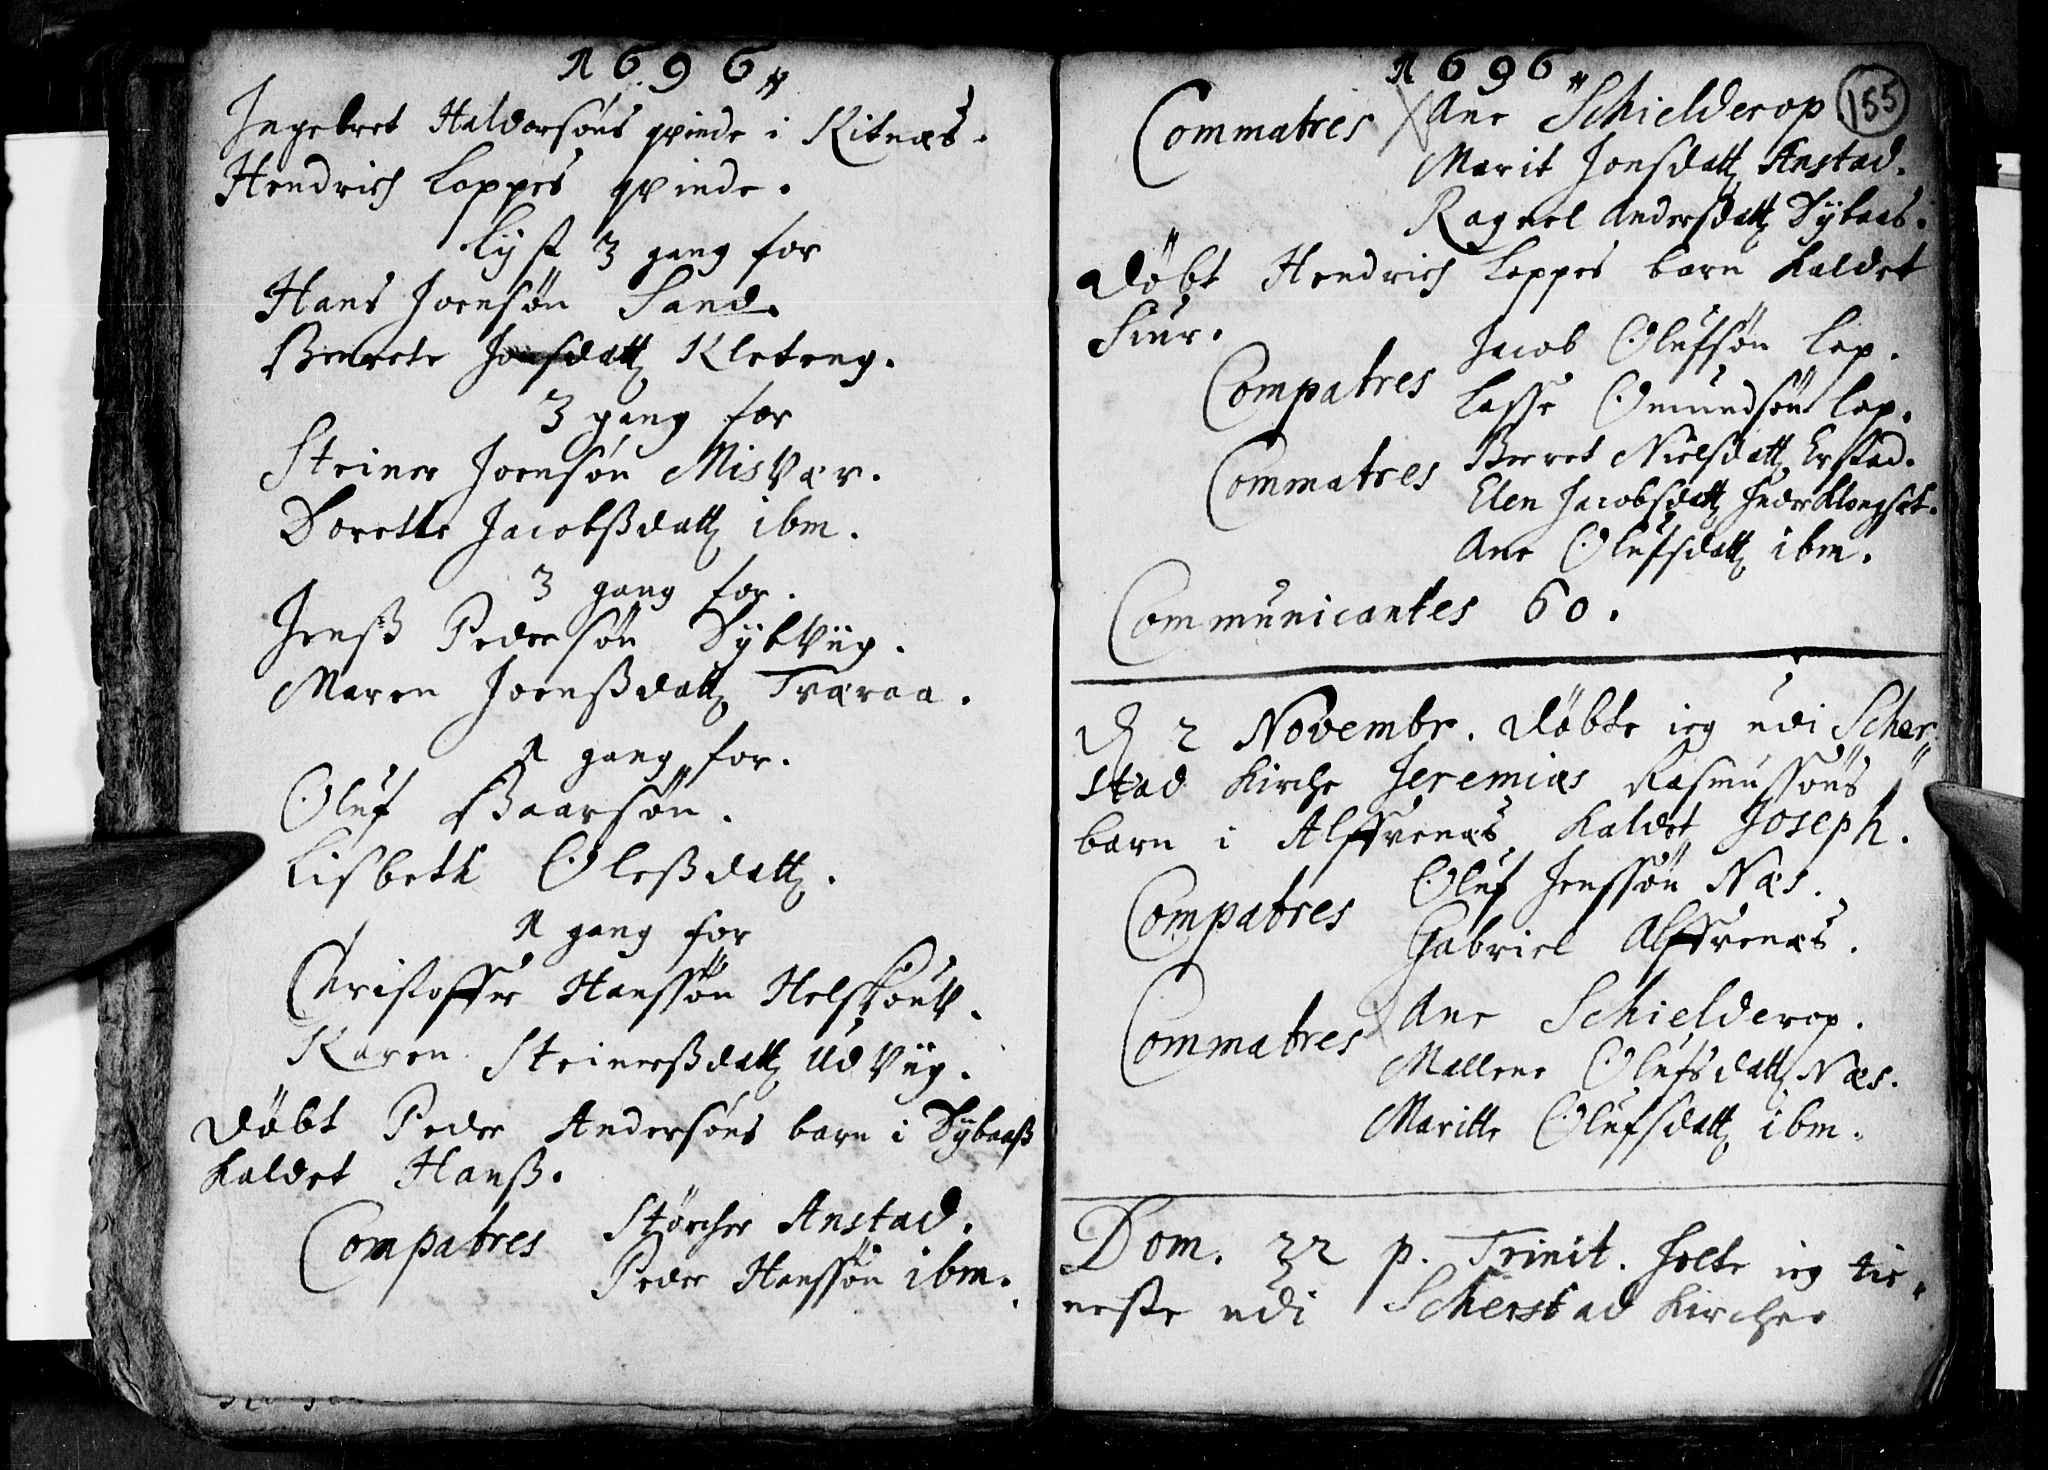 1696
Ingebret Haldorsøns qvinde i Kitnæs.
Hendrich Lappes qvinde.
Lyst 3 gang for
Hans Joensøn Sand.
Berrete Jonsdatt Kleteng.
3 gang for
Steiner Joensøn Misvær.
Dorethe Jacobßdatt ibm.
3 gang for.
Jenß Pedersøn Dybviig.
Maren Joenßdatt Tværaa.
1 gang for.
Oluf Baarsøn.
Lisbeth Oleßdatt.
1 gang for
Christoffer Hanssøn
Karen Steinerßdatt Udviig.
Døbt Peder Andersøns barn i Dybaaß
kaldet Hanß.
Compatres Størcher Anstad.
Peder Hanssøn ibm.
1696
155
Commatres Ane Schielderop.
Marit Jonsdatt Anstad.
Ragnel Andersdatt Dybaas.
Døbt Hendrich Lappes barn kaldet
Siur.
Compatres Jacob Olufsøn Lap.
Lasse Omundsøn Lap.
Commatres Berret Nielsdatt Erstad.
Elen Jacobsdatt Indre Klongset.
Ane Olufsdatt ibm.
Communicantes 60.
D 2 Novembr. Døbte ieg udi Scher-
stad Kirche Jeremias Rasmussøns
barn i Alffvenæs kaldet Joseph.
Compatres Oluf Jenssøn Næs.
Gabriel Alffvenæs.
Commatres Ane Schielderop.
Mallene Olufsdatt Næs.
Maritte Olufsdatt ibm.
Dom. 22 p. Trinit. holte ieg tie-
neste udi Scherstad Kircher